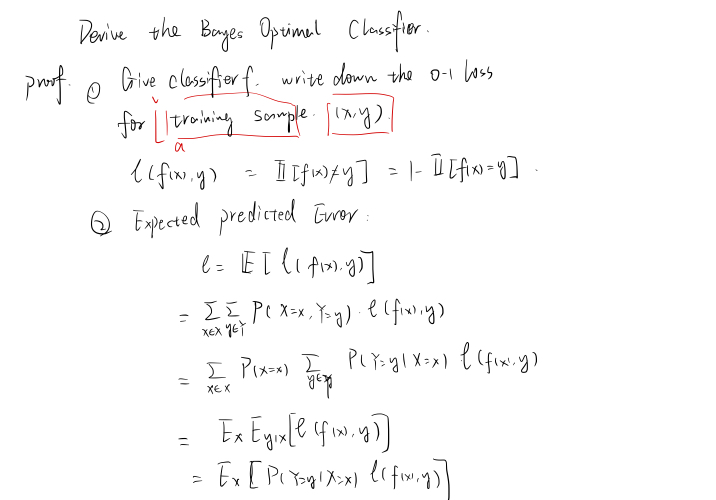 Derive the Bayes Optimal Classifier.
proof. ① Give classifier f. write down the 0-1 loss
for a training sample. (x,y).
l(f(x),y) = 𝕀[f(x)≠y] = 1-𝕀[f(x)=y].
② Expected predicted Error:
l = 𝔼[l(f(x),y)]
= Σ_{x∈X} Σ_{y∈Y} P(X=x,Y=y)·l(f(x),y)
= Σ_{x∈X} P(X=x) Σ_{y∈y} P(Y=y|X=x) l(f(x),y)
= E_x E_{y|x}[l(f(x),y)]
= E_x[P(Y=y|X=x) l(f(x),y)]